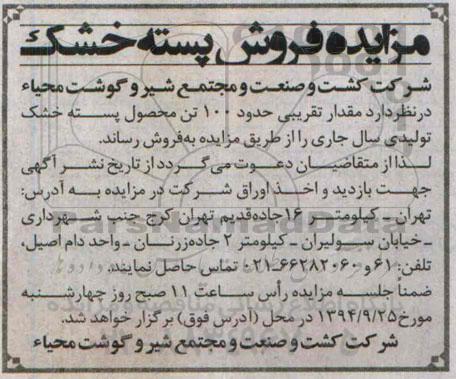 مزایده فروش پسته خشک
شرکت کشت و صنعت و مجتمع شیر و گوشت محیاء
درنظردارد مقدار تقریبی حدود ۱۰۰ تن محصول پسته خشک
تولیدی سال جاری را از طریق مزایده به‌فروش رساند.
لذا از متقاضیان دعوت می‌گردد از تاریخ نشر آگهی
جهت بازدید و اخذ اوراق شرکت در مزایده به آدرس:
تهران ـ کیلومتر ۱۶ جاده‌قدیم تهران کرج جنب شهرداری
ـ خیابان سولیران ـ کیلومتر ۲ جاده‌زرنان ـ واحد دام اصیل،
تلفن: ۶۱ و ۶۶۲۸۲۰۶۰-۰۲۱ تماس حاصل نمایند.
ضمناً جلسه مزایده رأس ساعت ۱۱ صبح روز چهارشنبه
مورخ ۱۳۹۴/۹/۲۵ در محل (آدرس فوق) برگزار خواهد شد.
شرکت کشت و صنعت و مجتمع شیر و گوشت محیاء
ParsNamadData